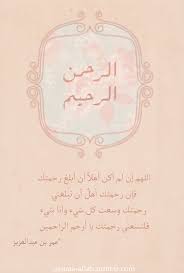 الرحمن
الرحيم
اللهم إن لم أكن أهلاً أن أبلغ رحمتك
فإن رحمتك أهل أن تبلغني
رحمتك وسعت كل شيء وأنا شيء
فلتسعني رحمتك يا أرحم الراحمين
عمر بن عبدالعزيز